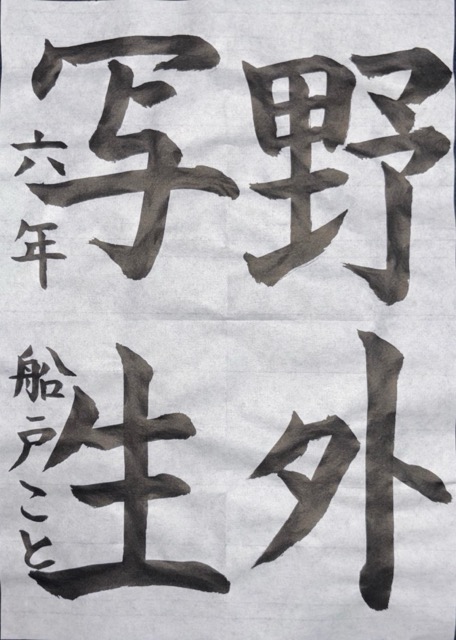 野外
写生
六年 船戸こと